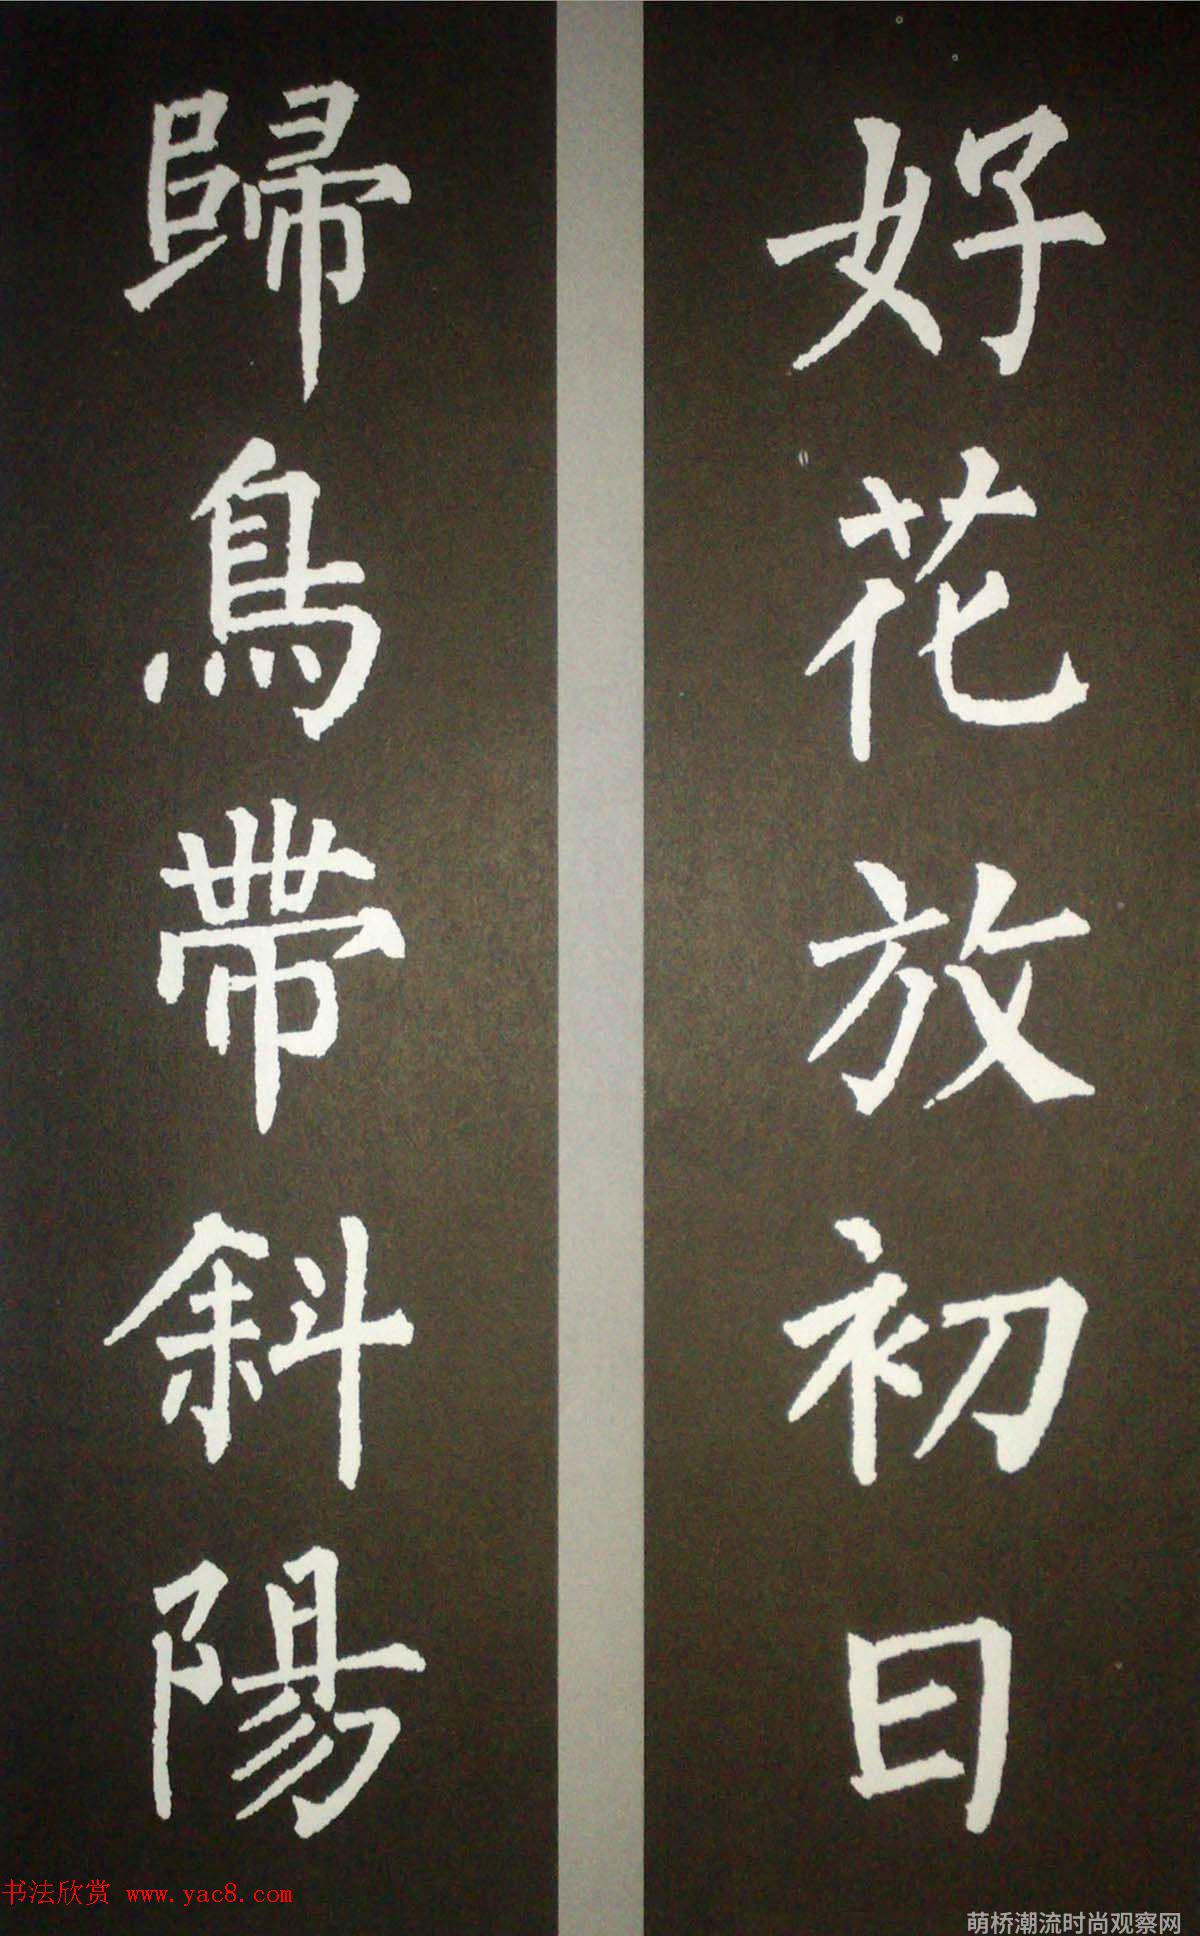 好花放初日
歸鳥帶斜陽
书法欣赏 www.yac8.com
萌桥潮流时尚观察网